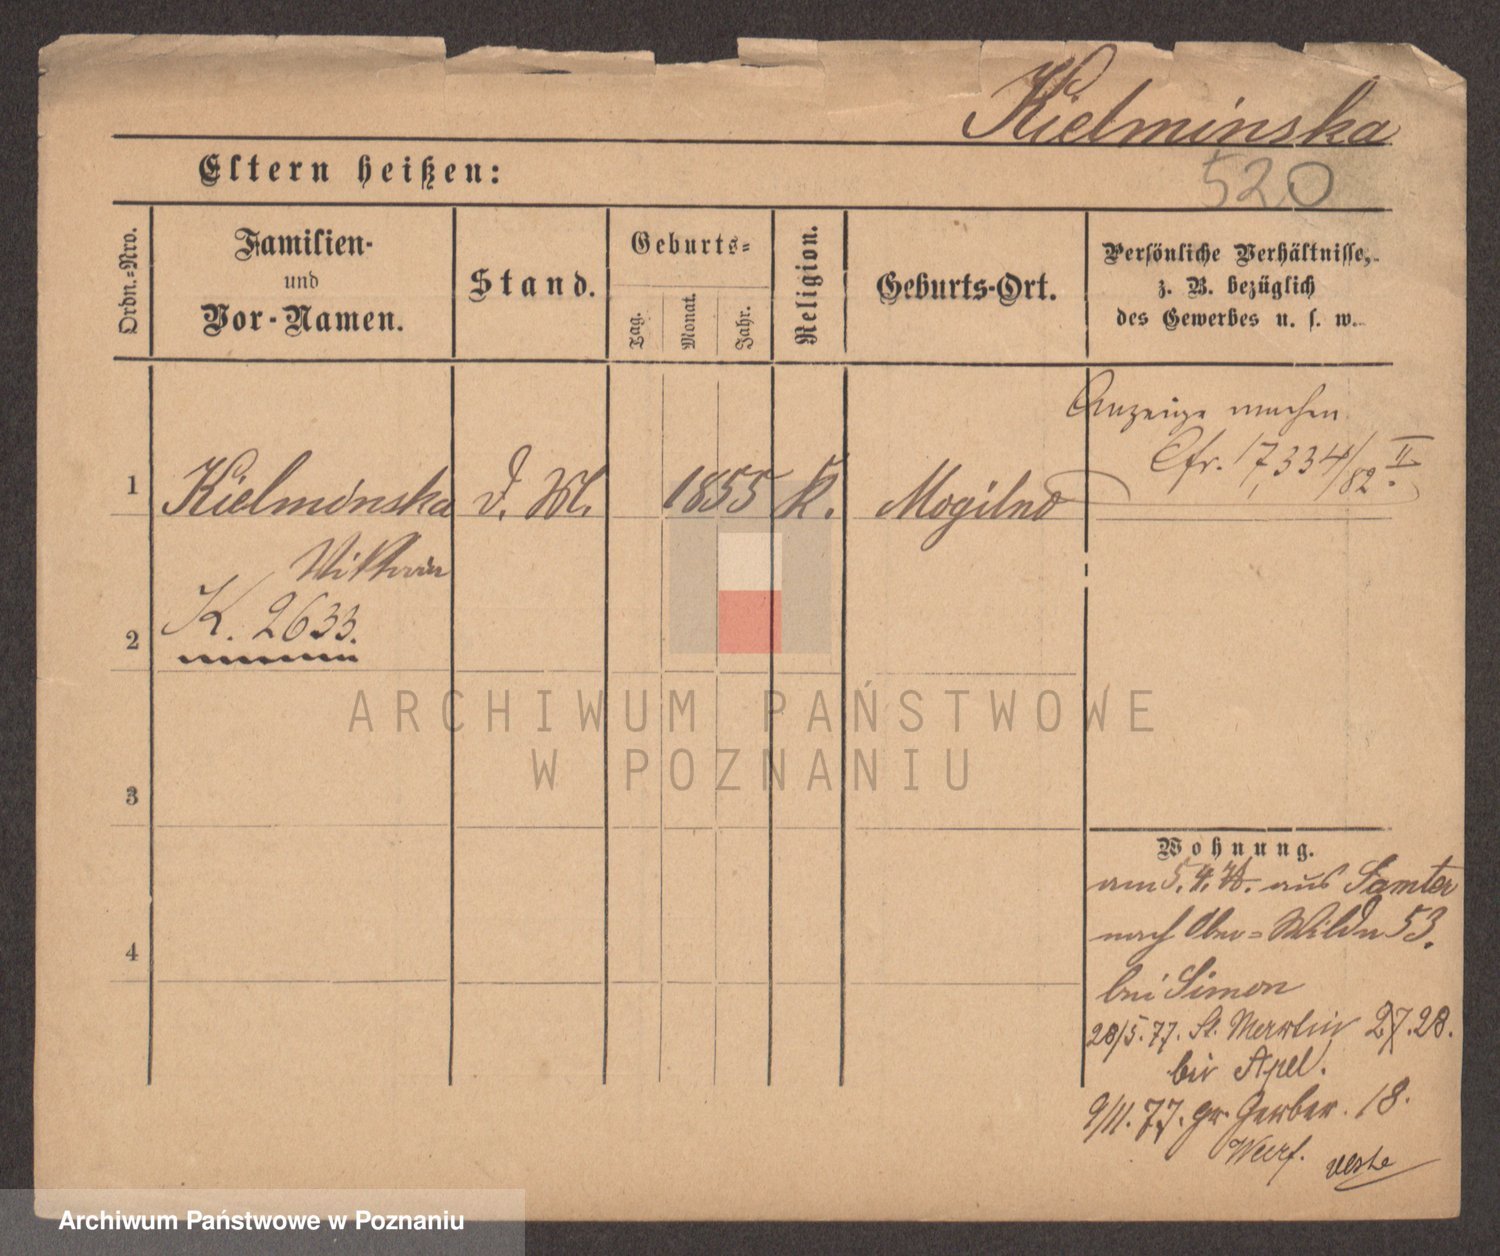 Kielminska
Eltern heißen:
520
Ordn.-Nro.
Familien-
und
Vor-Namen.
Stand.
Geburts-
Tag.
Monat.
Jahr.
Religion.
Geburts-Ort.
Persönliche Verhältnisse,
z. B. bezüglich
des Gewerbes u. s. w.
Anzeige machen
Cfr. 17,334/82 II.
1 Kielminska d. M. 1855 K. Mogilno
Viktoria
2 K. 2633.
ARCHIWUM PAŃSTWOWE
W POZNANIU
3
4
Wohnung.
am 5. 4. aus Samter
nach Ober-Wilda 53.
bei Simon
28/5. 77. St. Martin 27.28.
bei Apel.
9/11. 77. gr. Gerber. 18.
Archiwum Państwowe w Poznaniu